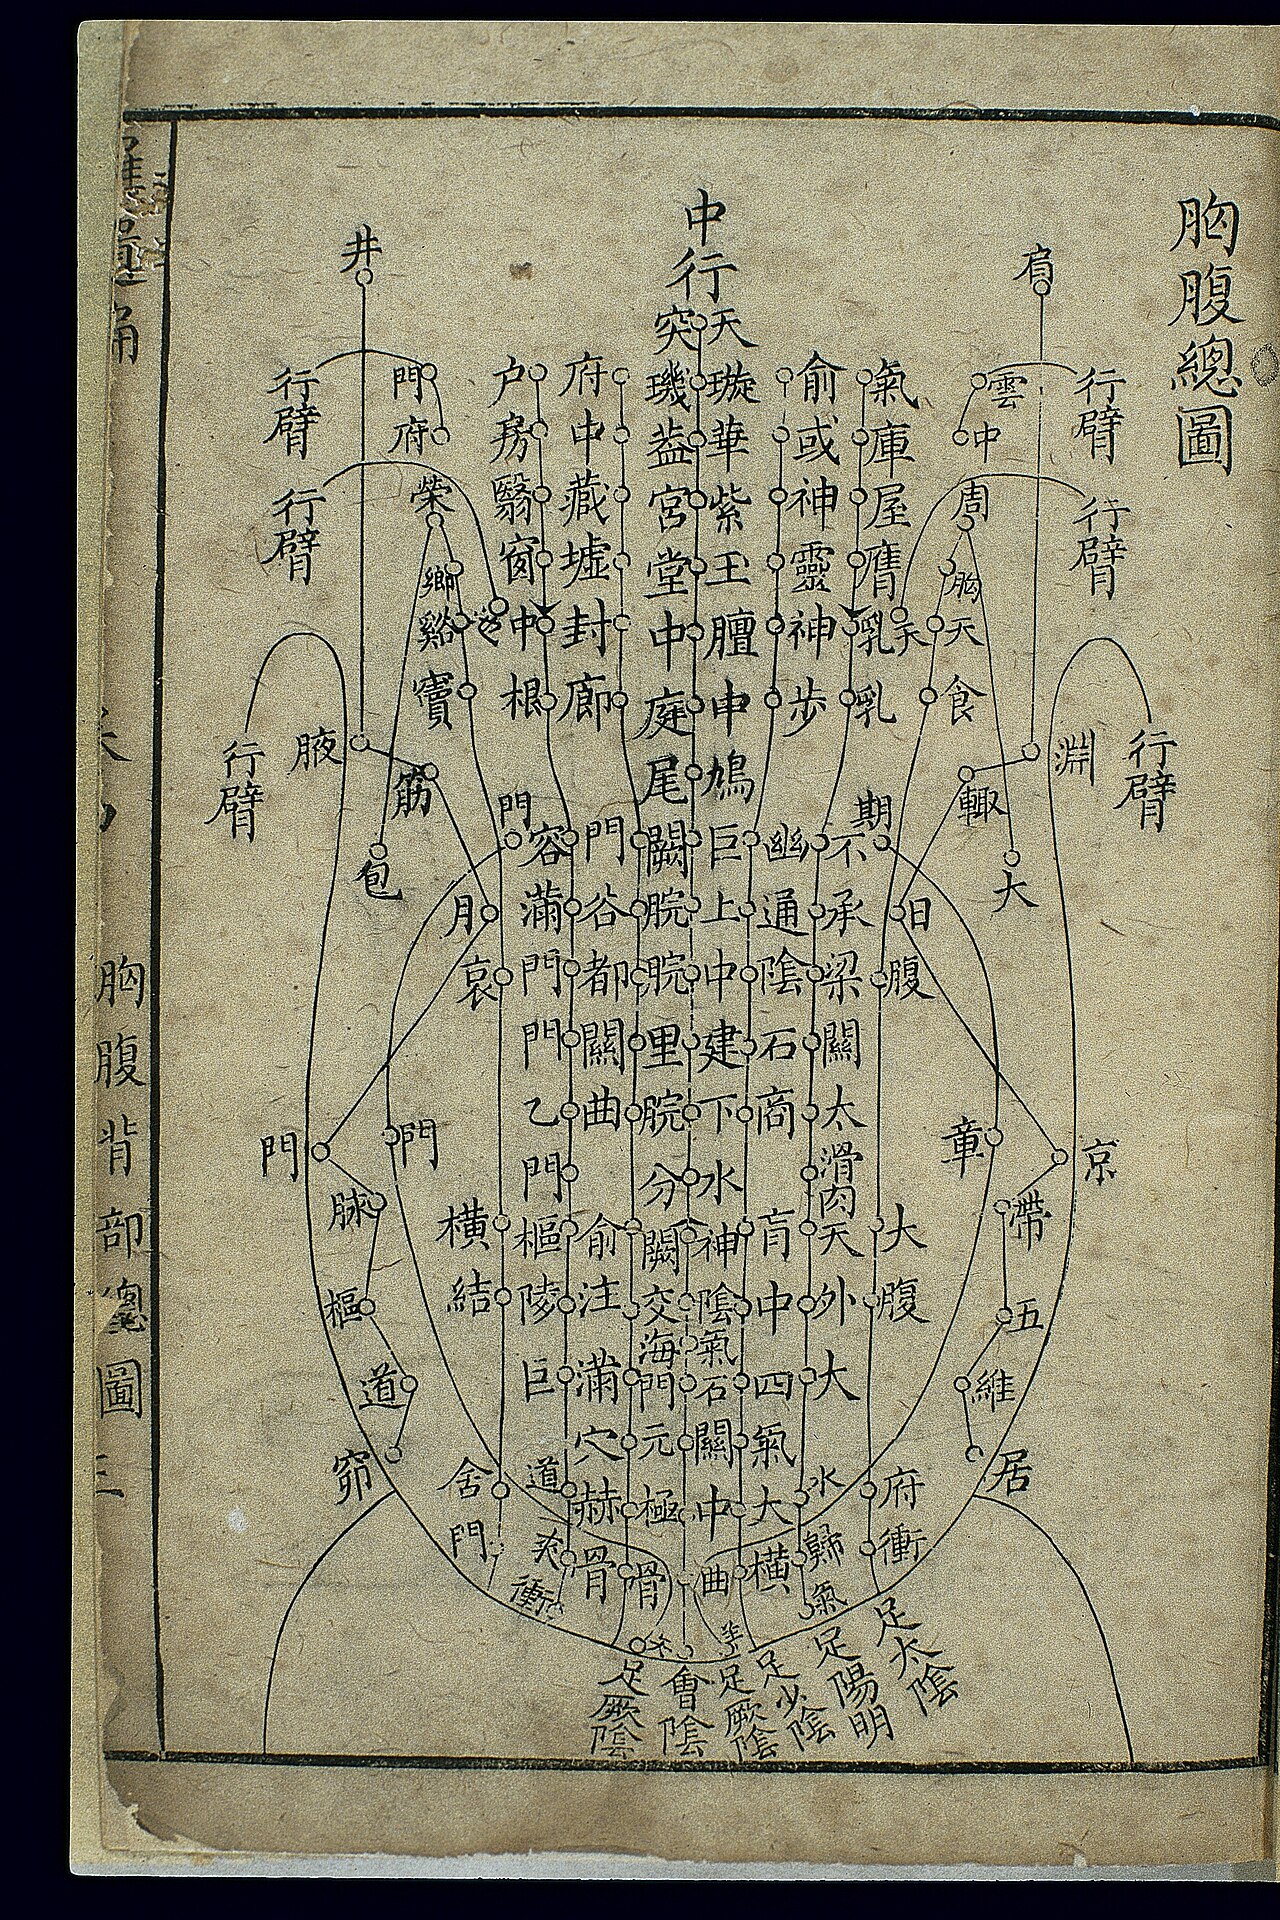 胸腹總圖
行臂
行臂
行臂
肩
雲中
周
胸
天
食
淵
輒
大
京
帶
五
維
居
章
氣庫屋膺乳乳
天
期
日
腹
大
腹
府
衝
俞或神靈神步
不承梁關太滑肉天外大
水
歸
氣
幽通陰石商肓中四氣大橫
中行
天璇華紫玉膻中鳩巨上中建下水神陰氣石關中曲
突璣蓋宮堂中庭尾闕脘脘里脘分闕交海門元極骨
府中藏墟封廊
門谷都關曲俞注滿穴赫骨
户房翳窗中根
容滿門門乙門樞陵巨
道
衝
門
哀
橫
結
舍
門
門府
榮
鄉
谿
竇
井
腋
筋
包
月
門
門
脉
樞
道
窌
行臂
行臂
行臂
足太陰
足陽明
足少陰
足厥陰
會陰
足厥陰
胸腹背部總圖